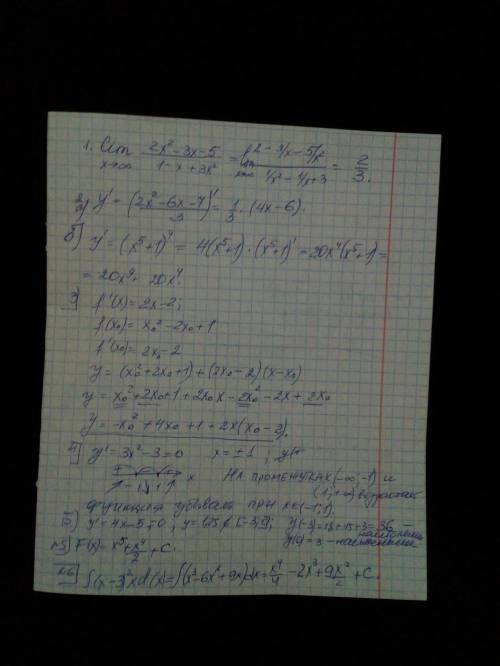 1. lim x→∞ (2x² - 3x - 5)/(1 - x + 3x²) = lim x→∞ (2 - 3/x - 5/x²)/(1/x² - 1/x + 3) = 2/3.
2) y' = ((2x² - 6x - 7)/3)' = 1/3 · (4x - 6).
б) y' = (x⁵+1)⁴ = 4(x⁵+1) · (x⁵+1)' = 20x⁴(x⁵+1) =
= 20x⁹ + 20x⁴.
3) f'(x) = 2x - 2;
f(x₀) = x₀² - 2x₀ + 1
f'(x₀) = 2x₀ - 2
y = (x₀² + 2x₀ + 1) + (2x₀ - 2)(x - x₀)
y = x₀² + 2x₀ + 1 + 2x₀x - 2x₀² - 2x + 2x₀
y = -x₀² + 4x₀ + 1 + 2x(x₀ - 2).
4) y' = 3x² - 3 = 0 x = ±1;
+ - + x На промежутках (-∞; -1) и
-1 1 (1; +∞) возрастает
функция убывает при x∈(-1; 1).
б) y' = 4x - 5 = 0; y = 1,25 ∉ [-3; 9]; y(-3) = 18 + 15 + 3 = 36 - наибольшее
= 3 - наименьшее
№5 F(x) = x⁵ + x⁴/2 + C.
№6 ∫(x-3)²xd(x) = ∫(x³ - 6x² + 9x)dx = x⁴/4 - 2x³ + 9x²/2 + C.